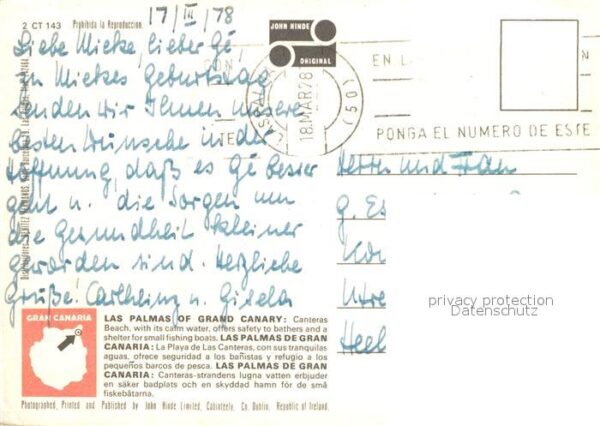 2 CT 143 Prohibida la Reproduccion.
17/III/78
Liebe Mieke, lieber Gé,
zu Miekes Geburtstag
senden wir Ihnen unsere
besten Wünsche in der
Hoffnung, daß es Gé besser
geht u. die Sorgen um
die Gesundheit kleiner
geworden sind. Herzliche
Grüße! Carlheinz u. Gisela
JOHN HINDE
ORIGINAL
18.MAR78
(50)
EN L
PONGA EL NUMERO DE ESTE
Herrn und Frau
G. Es
Kon
Utre
Heel
privacy protection
Datenschutz
GRAN CANARIA
LAS PALMAS OF GRAND CANARY: Canteras
Beach, with its calm water, offers safety to bathers and a
shelter for small fishing boats. LAS PALMAS DE GRAN
CANARIA: La Playa de Las Canteras, con sus tranquilas
aguas, ofrece seguridad a los bañistas y refugio a los
pequeños barcos de pesca. LAS PALMAS DE GRAN
CANARIA: Canteras-strandens lugna vatten erbjuder
en säker badplats och en skyddad hamn för de små
fiskebåtarna.
Photographed, Printed and Published by John Hinde Limited, Cabinteely, Co. Dublin, Republic of Ireland.